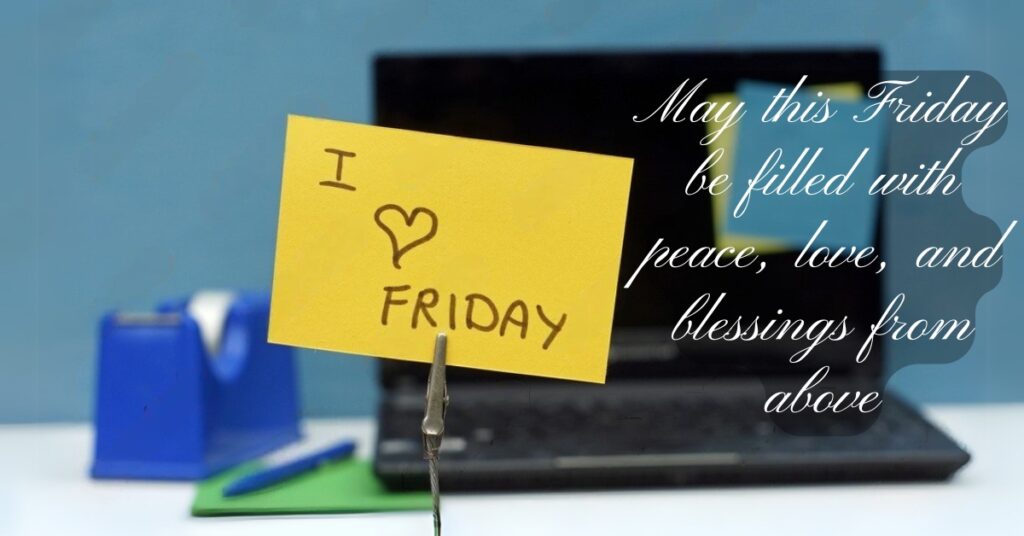 I
♡
FRIDAY
May this Friday
be filled with
peace, love, and
blessings from
above